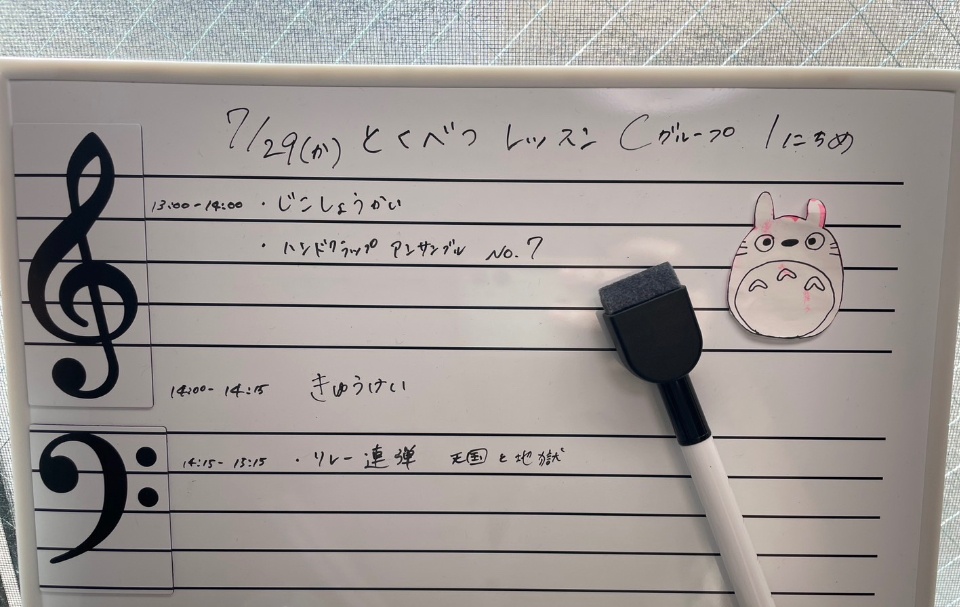 7/29(か) とくべつ レッスン Cグループ 1にちめ
13:00-14:00 ・じこしょうかい
・ハンドクラップ アンサンブル No.7
14:00-14:15 きゅうけい
14:15-15:15 ・リレー連弾 天国と地獄